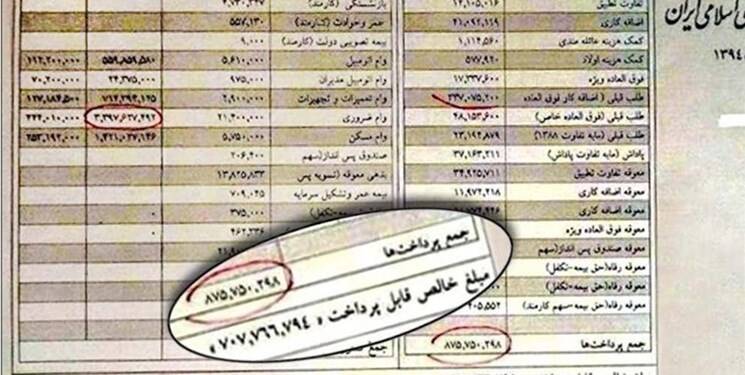 اسلامی ایران
۱۳۹۴
تفاوت تطبیق ۱۲,۱۰۵,۰۱۶
اضافه کاری ۲۱,۰۹۲,۱۱۹
کمک هزینه عائله مندی ۱,۱۱۴,۵۶۰
کمک هزینه اولاد ۵۷۷,۹۲۰
فوق العاده ویژه ۱۷,۳۳۷,۶۰۰
طلب قبلی (اضافه کار فوق العاده ۳۳۷,۰۷۵,۲۰۰
طلب قبلی (فوق العاده خاص) ۴۸,۱۵۳,۶۰۰
طلب قبلی (مابه تفاوت ۱۳۸۸) ۲۳,۱۹۲,۸۷۹
پاداش (مابه تفاوت پاداش) ۳۷,۱۶۳,۲۱۱
معوقه تفاوت تطبیق ۳۴,۹۲۵,۷۱۱
معوقه اضافه کاری ۱۱,۹۷۲,۲۱۸
معوقه اضافه کاری
معوقه فوق العاده ویژه
معوقه صندوق پس انداز(سهم
معوقه رفاه(حق بیمه-تکفل)
معوقه رفاه(حق بیمه-تکفل)
معوقه رفاه(حق بیمه-سهم کارمند)
جمع پرداخت‌ها ۸۷۵,۷۵۰,۲۹۸
بازنشستگی (کارمند)
عمر و حوادث (کارمند) ۵۵۷,۱۳۰
بیمه تصویبی دولت (کارمند) ۹,۰۰۰
وام اتومبیل ۵,۶۱۰,۰۰۰ ۵۵۹,۸۵۹,۵۸۰ ۱۱۲,۲۰۰,۰۰۰
وام اتومبیل مدیران ۹۷۵,۰۰۰ ۲۴,۳۷۵,۰۰۰ ۷۰,۲۰۰,۰۰۰
وام تعمیرات و تجهیزات ۲,۹۰۰,۰۰۰ ۷۱۲,۳۹۴,۱۲۵ ۱۲۷,۱۸۴,۵۰۰
وام ضروری ۲۱,۴۰۰,۰۰۰ ۳,۳۹۷,۶۳۷,۴۹۲ ۴۴۴,۰۱۰,۰۰۰
وام مسکن ۵,۷۵۰,۰۰۰ ۱,۴۲۱,۰۳۷,۱۴۶ ۲۵۳,۱۹۲,۰۰۰
صندوق پس انداز(سهم ۲۰۶,۴۰۰
بدهی معوقه (تسویه پس ۱۳,۸۲۵,۸۳۳
بیمه عمر و تشکیل سرمایه ۷۰۹,۰۴۵
۳۷۵,۰۰۰
۴۶۲,۳۳۶
جمع
جمع پرداخت‌ها
۸۷۵,۷۵۰,۲۹۸
مبلغ خالص قابل پرداخت « ۷۰۷,۷۶۶,۷۹۴ »